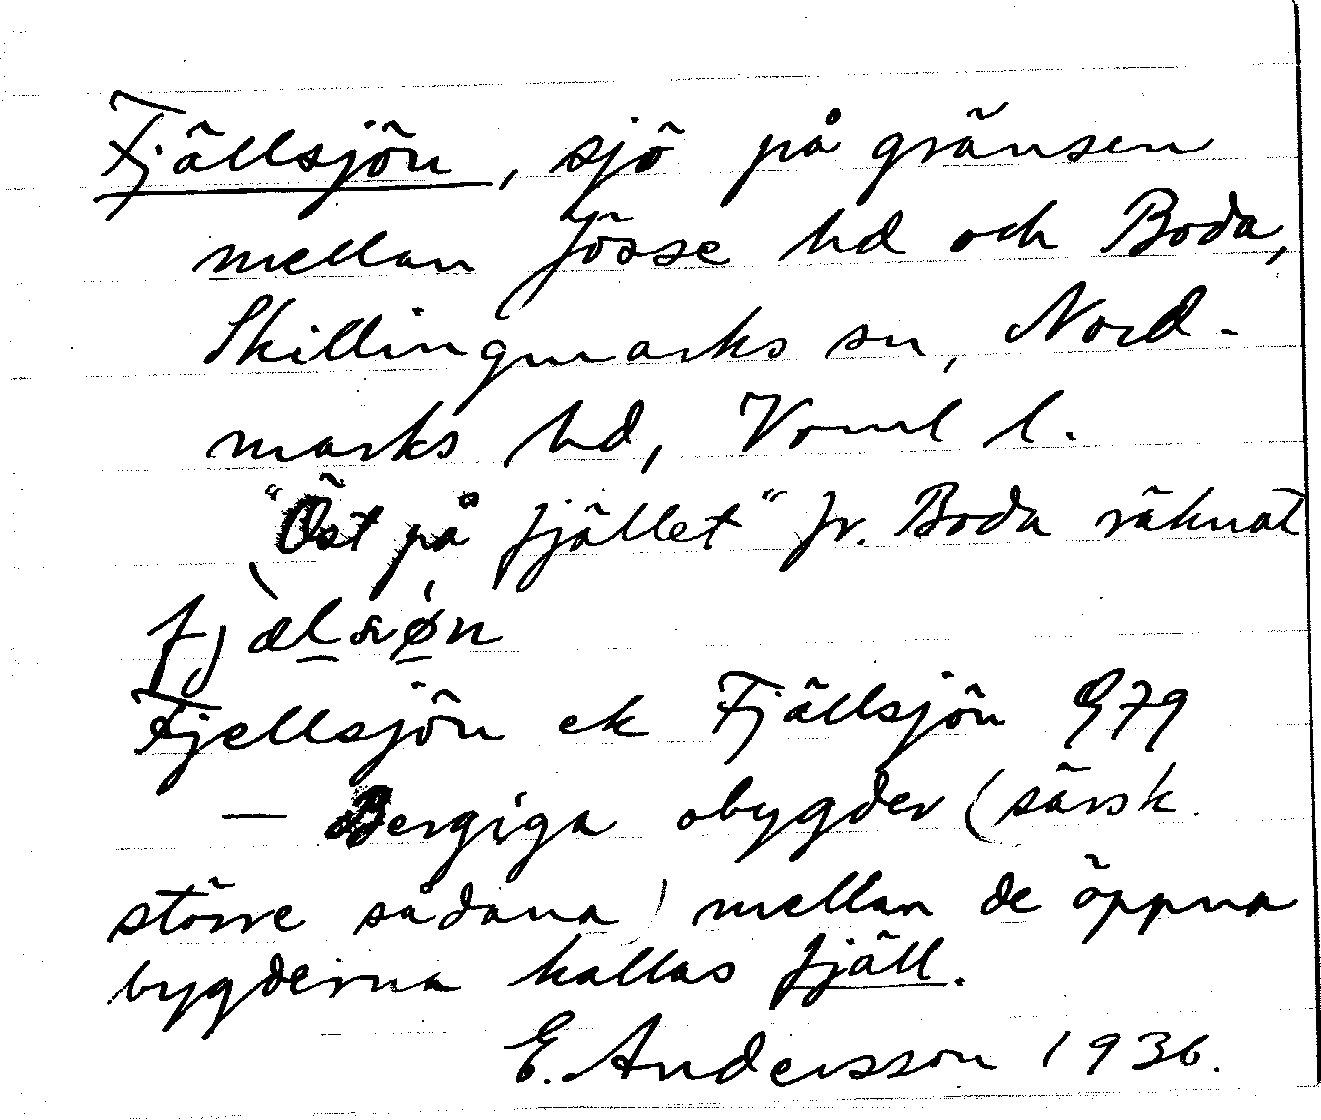 Fjällsjön, sjö på gränsen
mellan Jösse hd och Boda,
Skillingmarks sn, Nord-
marks hd, Vrml l.
"Öst på fjället" fr. Boda räknat
Fjellsjön ek Fjällsjön G79
— Bergiga obygder (särsk.
större sådana) mellan de öppna
bygderna kallas fjäll.
E. Andersson 1936.